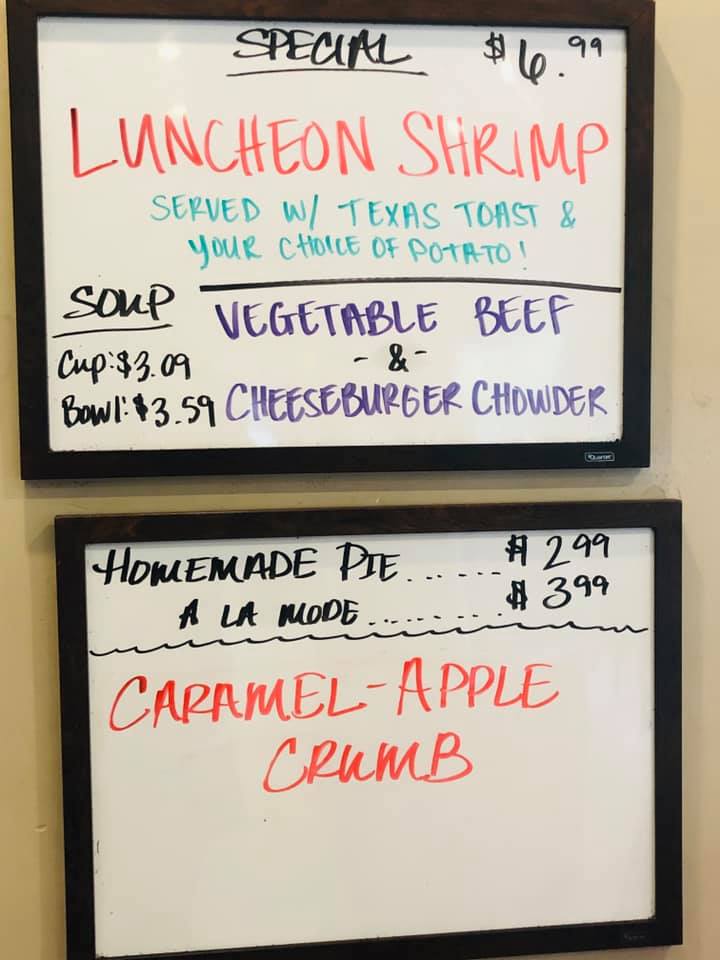 SPECIAL $6.99
LUNCHEON SHRIMP
SERVED W/ TEXAS TOAST &
YOUR CHOICE OF POTATO!
SOUP
Cup: $3.09
Bowl: $3.59
VEGETABLE BEEF
- & -
CHEESEBURGER CHOWDER
Quartet
HOMEMADE PIE......... $2.99
A LA MODE............ $3.99
CARAMEL-APPLE
CRUMB